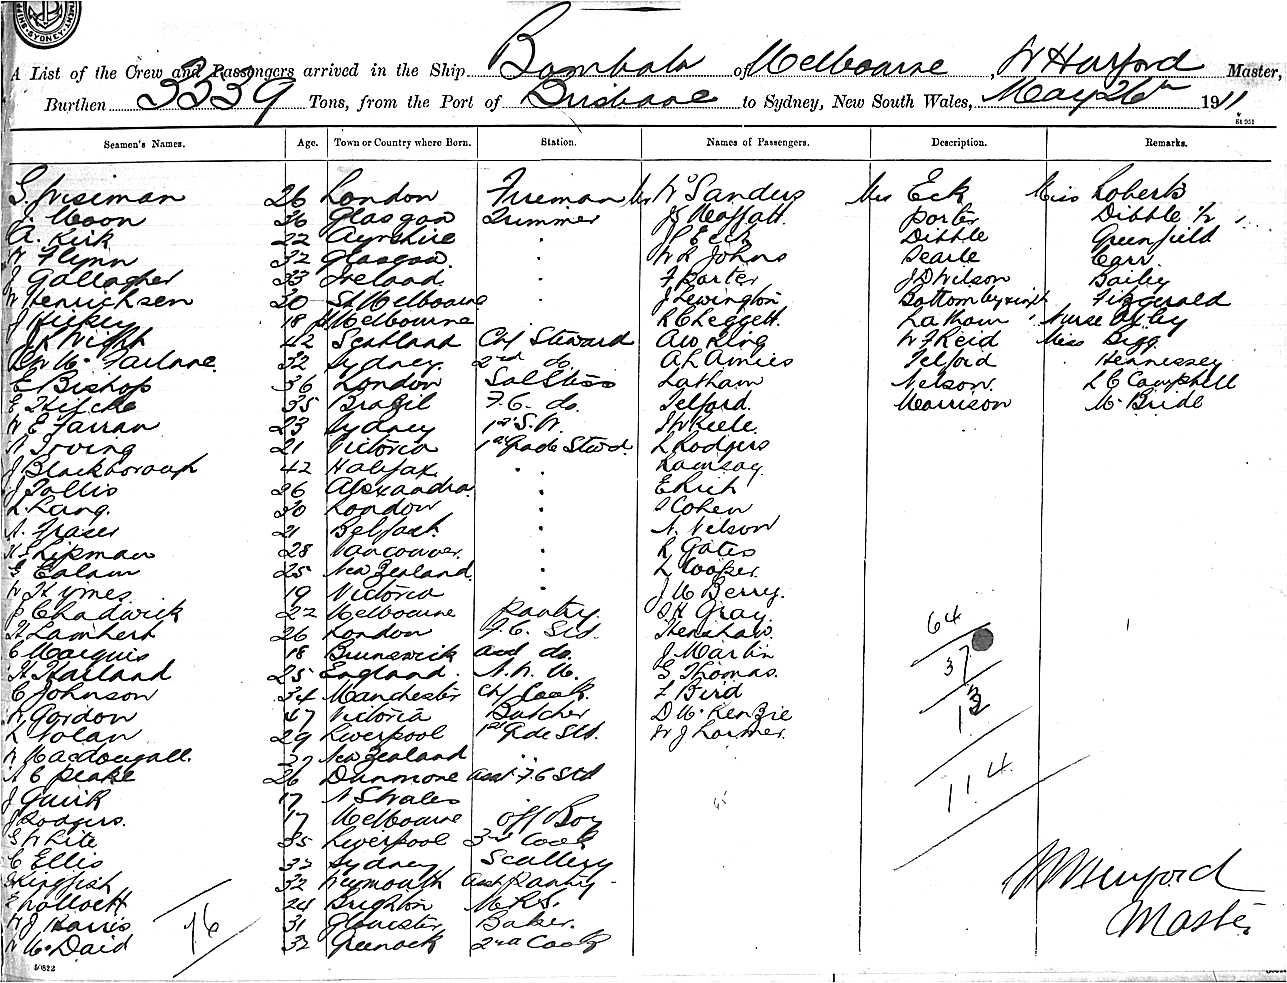 SYDNEY
A List of the Crew and Passengers arrived in the Ship Bombala of Melbourne, W Hurford Master,
Burthen 3339 Tons, from the Port of Brisbane to Sydney, New South Wales, May 26th 1911
Seamen's Names. Age. Town or Country where Born. Station. Names of Passengers. Description. Remarks.
S. Wiseman 26 London Fireman Mr W Sanders Mrs Eck Miss Roberts
J. Moon 36 Glasgow Trimmer J Moffatt Porter Dibble
A. Kirk 22 Ayrshire " Eck Dibble Greenfield
W Flynn 32 Glasgow " W R Johns Searle Carr
J Gallagher 33 Ireland " F Porter J D Wilson Bailey
W Henrichsen 20 St Melbourne " J Lewington Bottom Fitzgerald
J Hickey 18 Melbourne R C Leggett Latham Nurse Oxley
42 Scotland Chf Steward King W F Reid Miss Digg
Mc Farlane 32 Sydney 2nd do. A L Amies Telford Hennessey
E Bishop 36 London Latham Nelson. L C Campbell
35 Brazil F.C. do. Telford. Morrison Mc Bride
W E Farran 23 Sydney 1st S.W. Keele.
Irving 21 Victoria 1st Grade Stwd. L Rodgers
J Blackborough 42 Halifax " Ramsay
J Tallis 26 Alexandra " E Rich
L. Lang. 30 London " Cohen
A. Fraser 21 Belfast " N. Nelson
H. Shipman 28 Vancouver. " R Gates
G Ealam 25 New Zealand. " L Cooper.
W Hymes 19 Victoria " J M Berry.
J Chadwick 22 Melbourne Pantry Gray
H Lambert 26 London F.C. Std. Henshaw. 64
C Marquis 18 Brunswick asst do. J Martin 37
H Harland 25 England. G Thomas.
C Johnson 34 Manchester Chf Cook Z Bird 13
R Gordon 47 Victoria Butcher D McKenzie
L Nolan 29 Liverpool 1st Gde Std. W J Lorimer.
W MacDougall. 37 New Zealand " 114
A E Peake 26 Dunmore asst F C Std
J Quirk 17 N S Wales
J Rodgers. 17 Melbourne Off Boy
S White 35 Liverpool 3rd Cook
C Ellis 32 Sydney Scullery
Kingfish 32 Weymouth asst Pantry
E Pollock 24 Brighton M.R.S. W Hurford
W J Harris 76 31 Gloucester Baker. Master
W Mc Daid 32 Greenock 2nd Cook